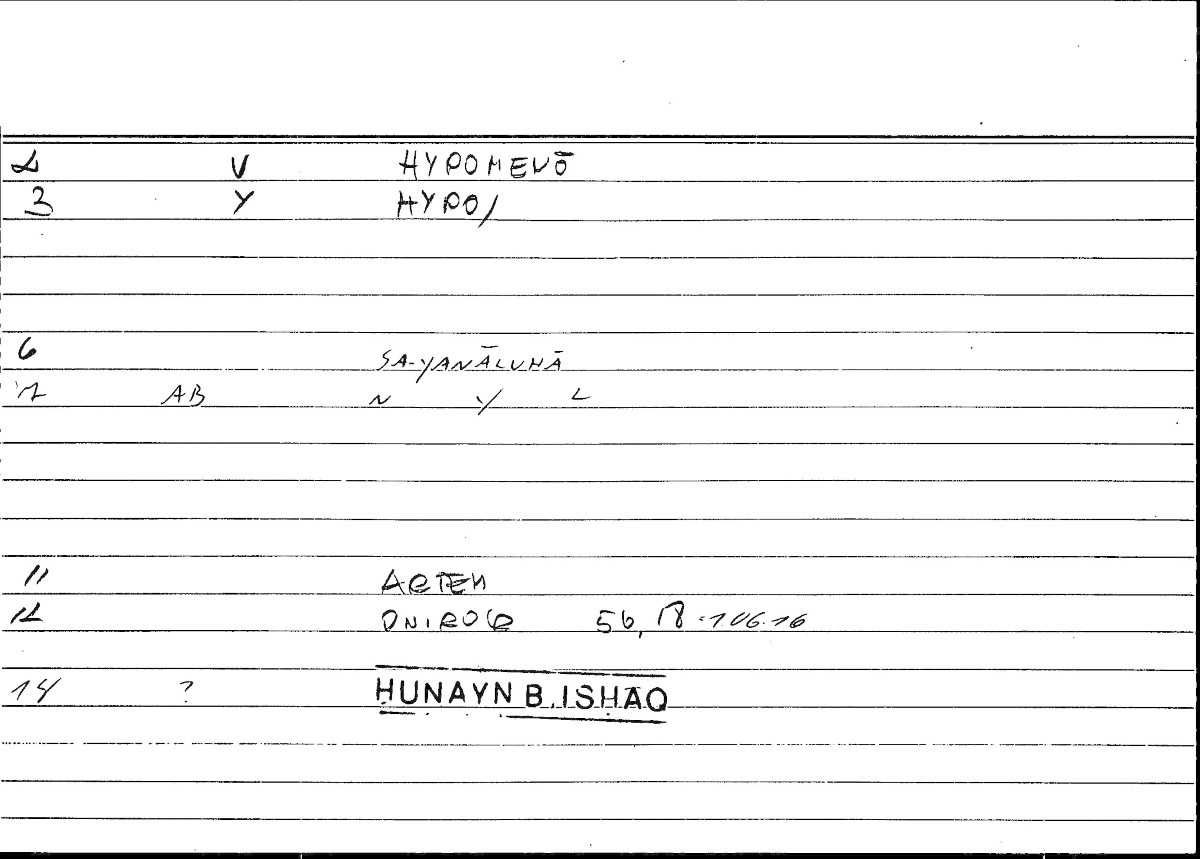 2 V HYPOMENŌ
3 Y HYPO/
6 SA-YANĀLUHĀ
7 AB N Y L
11 ARTEM
12 ONIROCR 56,18-106.16
14 ? ḤUNAYN B. ISḤĀQ